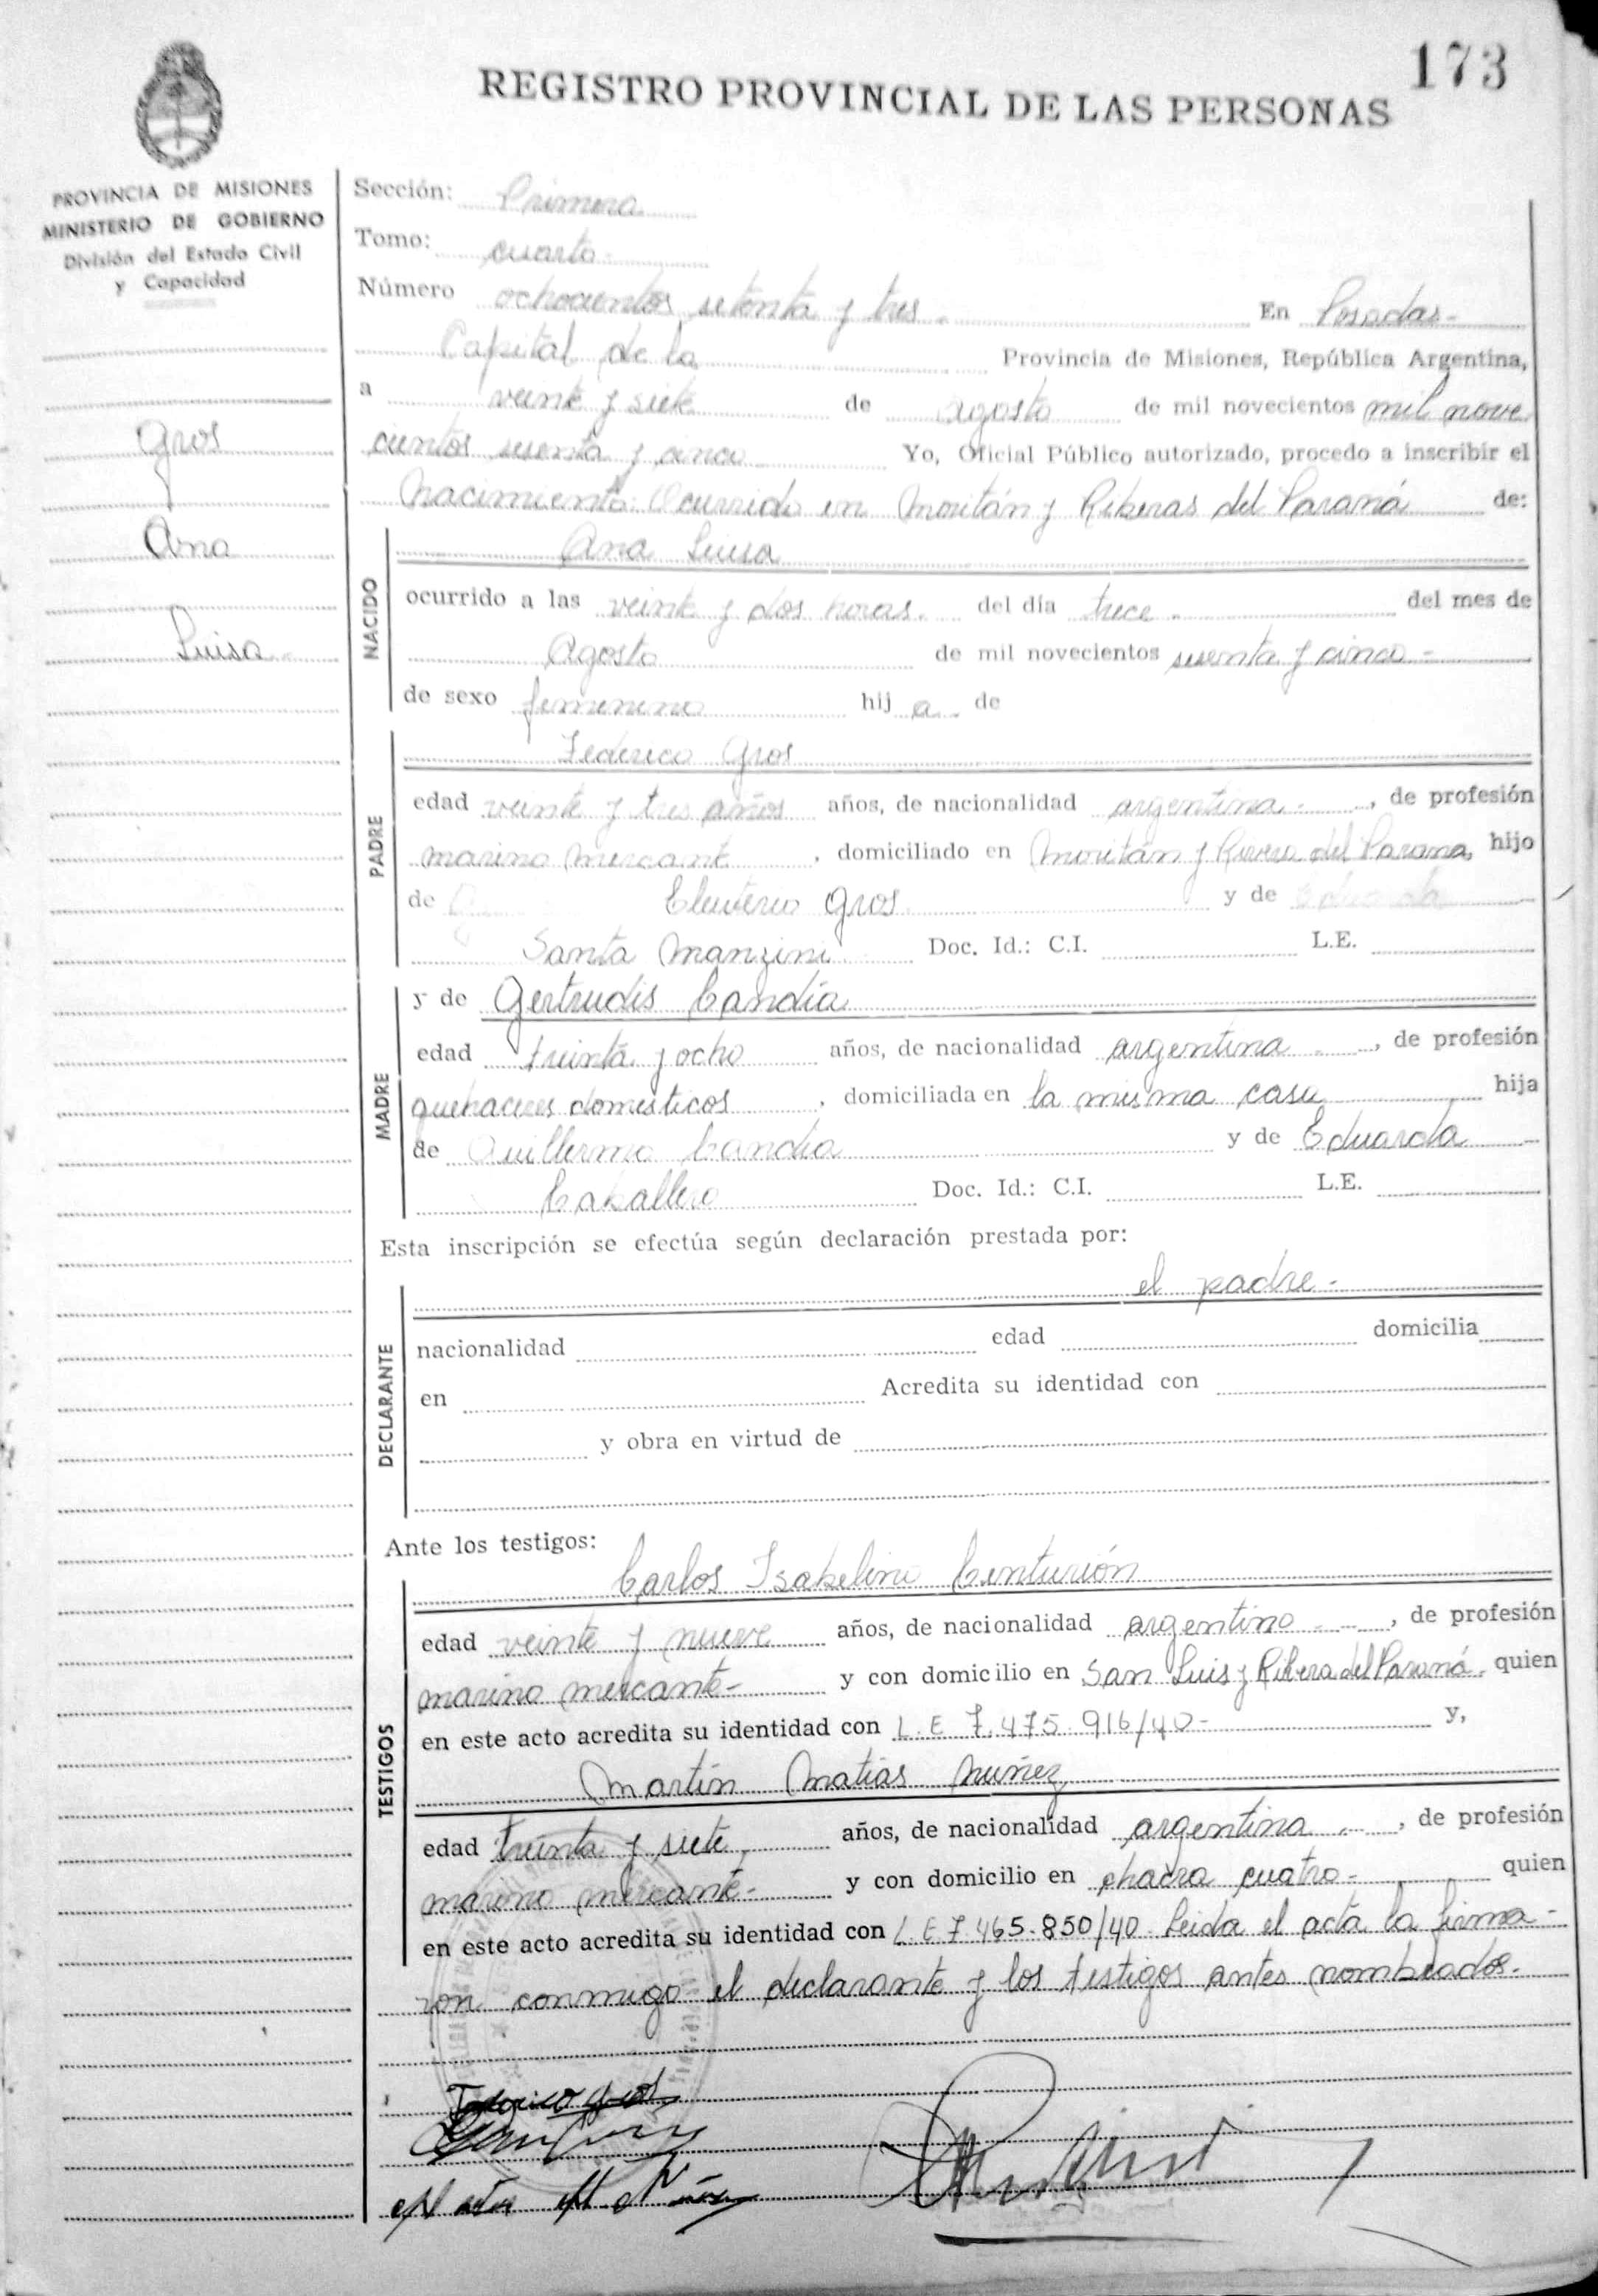 173
REGISTRO PROVINCIAL DE LAS PERSONAS
PROVINCIA DE MISIONES
MINISTERIO DE GOBIERNO
División del Estado Civil
y Capacidad
Gros
Ana
Luisa
Sección: Primera
Tomo: cuarto
Número ochocientos setenta y tres - En Posadas -
Capital de la Provincia de Misiones, República Argentina,
a veinte y siete de agosto de mil novecientos mil nove
cientos sesenta y cinco Yo, Oficial Público autorizado, procedo a inscribir el
Nacimiento: Ocurrido en Moritán y Riberas del Paraná de:
NACIDO
Ana Luisa
ocurrido a las veinte y dos horas. del día trece - del mes de
Agosto de mil novecientos sesenta y cinco -
de sexo femenino hij a de
PADRE
Federico Gros
edad veinte y tres años años, de nacionalidad argentina - , de profesión
marino mercant , domiciliado en Moritán y Rivera del Parana, hijo
de Eleuterio Gros y de
Santa Manzini Doc. Id.: C.I. L.E.
MADRE
y de Gertrudis Candia
edad treinta y ocho años, de nacionalidad argentina - , de profesión
quehaceres domesticos , domiciliada en la misma casa hija
de Guillermo Candia y de Eduarda
Caballero Doc. Id.: C.I. L.E.
Esta inscripción se efectúa según declaración prestada por:
DECLARANTE
el padre -
nacionalidad edad domicilia
en Acredita su identidad con
y obra en virtud de
Ante los testigos:
TESTIGOS
Carlos Isabelino Centurión
edad veinte y nueve años, de nacionalidad argentino - , de profesión
marino mercante - y con domicilio en San Luis y Ribera del Paraná - quien
en este acto acredita su identidad con L. E 7.475.916/40 - y,
Martín Matias Nuñez
edad treinta y siete, años, de nacionalidad argentina - , de profesión
marino mercante - y con domicilio en chacra cuatro - quien
en este acto acredita su identidad con L. E 7.465.850/40. Leida el acta la firma -
ron conmigo el declarante y los testigos antes nombrados -
Federico Gros